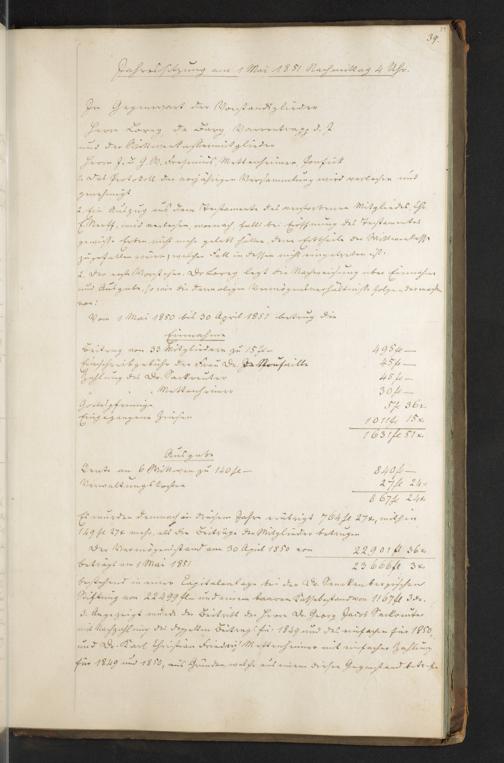 39.
Jahressitzung am 1 Mai 1851 Nachmittag 4 Uhr.
In Gegenwart der Vorstandsglieder
Herrn Lorey, de Bary, Varrentrapp d. J.
und der Wittwenkassemitglieder
Herrn J. u. G. W. Fresenius, Mettenheimer,
1. Das Protokoll der vorjährigen Versammlung wird verlesen und
genehmigt
2. Ein Auszug aus dem Testamente des verstorbenen Mitgliedes Dr.
wird verlesen, wonach falls bei Eröffnung des Testamentes
gewisse Erben nicht mehr gelebt hätten, dann der Wittwenkasse
zugefallen wären, welcher Fall indessen nicht eingetreten ist.
3. Der erste Vorsteher Dr. Lorey legt die Nachweisung über Einnahme
und Ausgabe, so wie die dermaligen Vermögensverhältnisse
vor:
Vom 1 Mai 1850 bis 30 April 1851 betrug die
Einnahme
Beitrag von 33 Mitgliedern zu 15 fl — 495 fl —
Einschreibgebühr der Frau Dr. de Neufville 45 fl —
Zahlung des Dr. Sarkreuter
" " " Mettenheimer 30 fl —
Gottespfennige 5 fl 36 x
Eingegangene Zinsen 1011 fl 15 x
1631 fl 51 x
Ausgabe
Rente an 6 Wittwen zu 140 fl — 840 fl —
Verwaltungskosten 27 fl 24 x
867 fl 24 x
Es wurden demnach in diesem Jahre erübrigt 764 fl 27 x, mithin
149 fl 27 x mehr, als die Beiträge der Mitglieder betragen
Der Vermögensstand am 30 April 1850 von 22901 fl 36 x
betrug am 1 Mai 1851 23666 fl 3 x
bestehend in einer Capitalanlage bei der Dr. Senckenbergischen
Stiftung von 22499 fl und einem baaren Kassebestand von 1167 fl 3 x.
4. Angezeigt wurde der Beitritt des Herrn Dr. Georg Jacob Sarkreuter
mit Nachzahlung des doppelten Beitrag für 1849 und des einfachen für 1850,
und Dr. Karl Christian Friedrich Mettenheimer mit einfacher Zahlung
für 1849 und 1850, aus Gründen, welche aus einem diesen Gegenstand